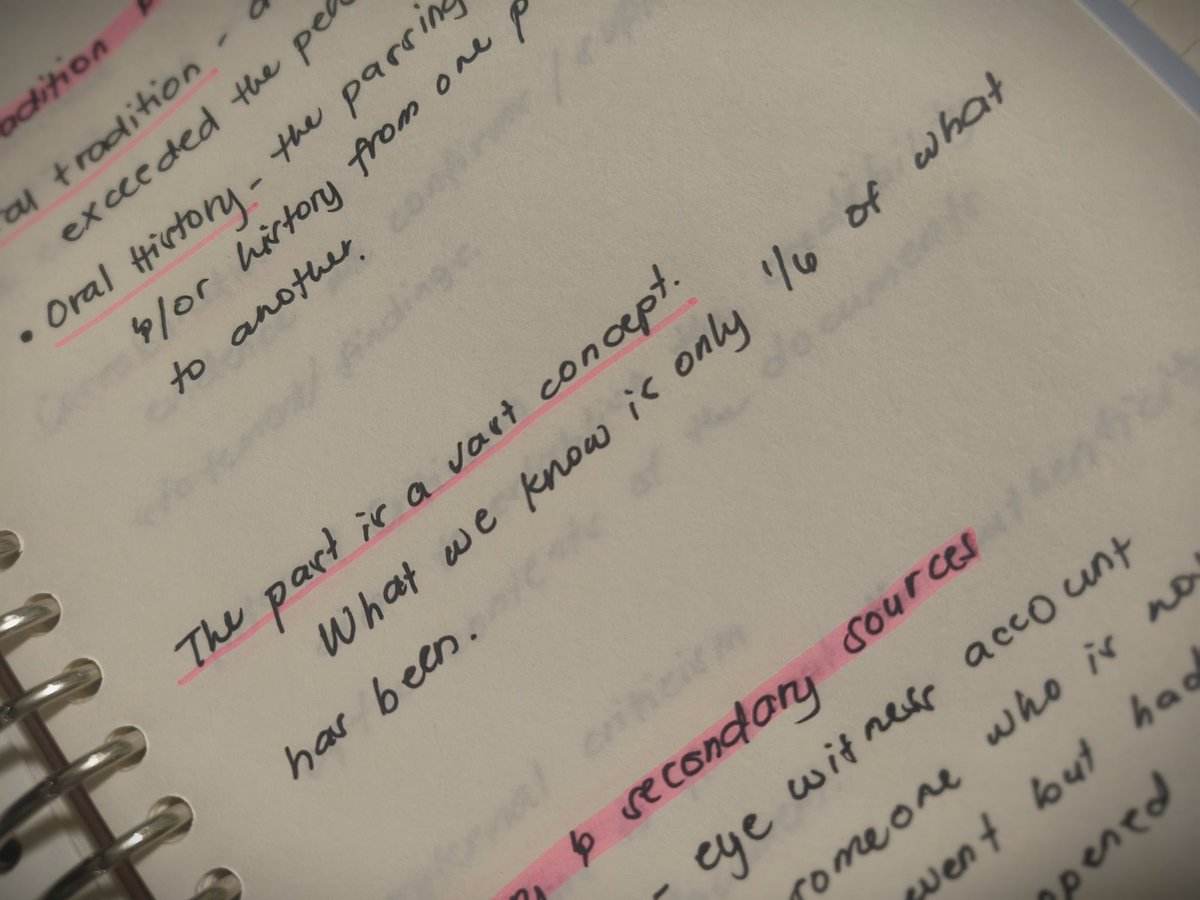 tradition
exceeded the
• Oral History - the passing
&/or history from one
to another.
The past is a vast concept.
What we know is only 1/6 of what
has been.
& secondary sources
- eye witness account
someone who is not
event but had